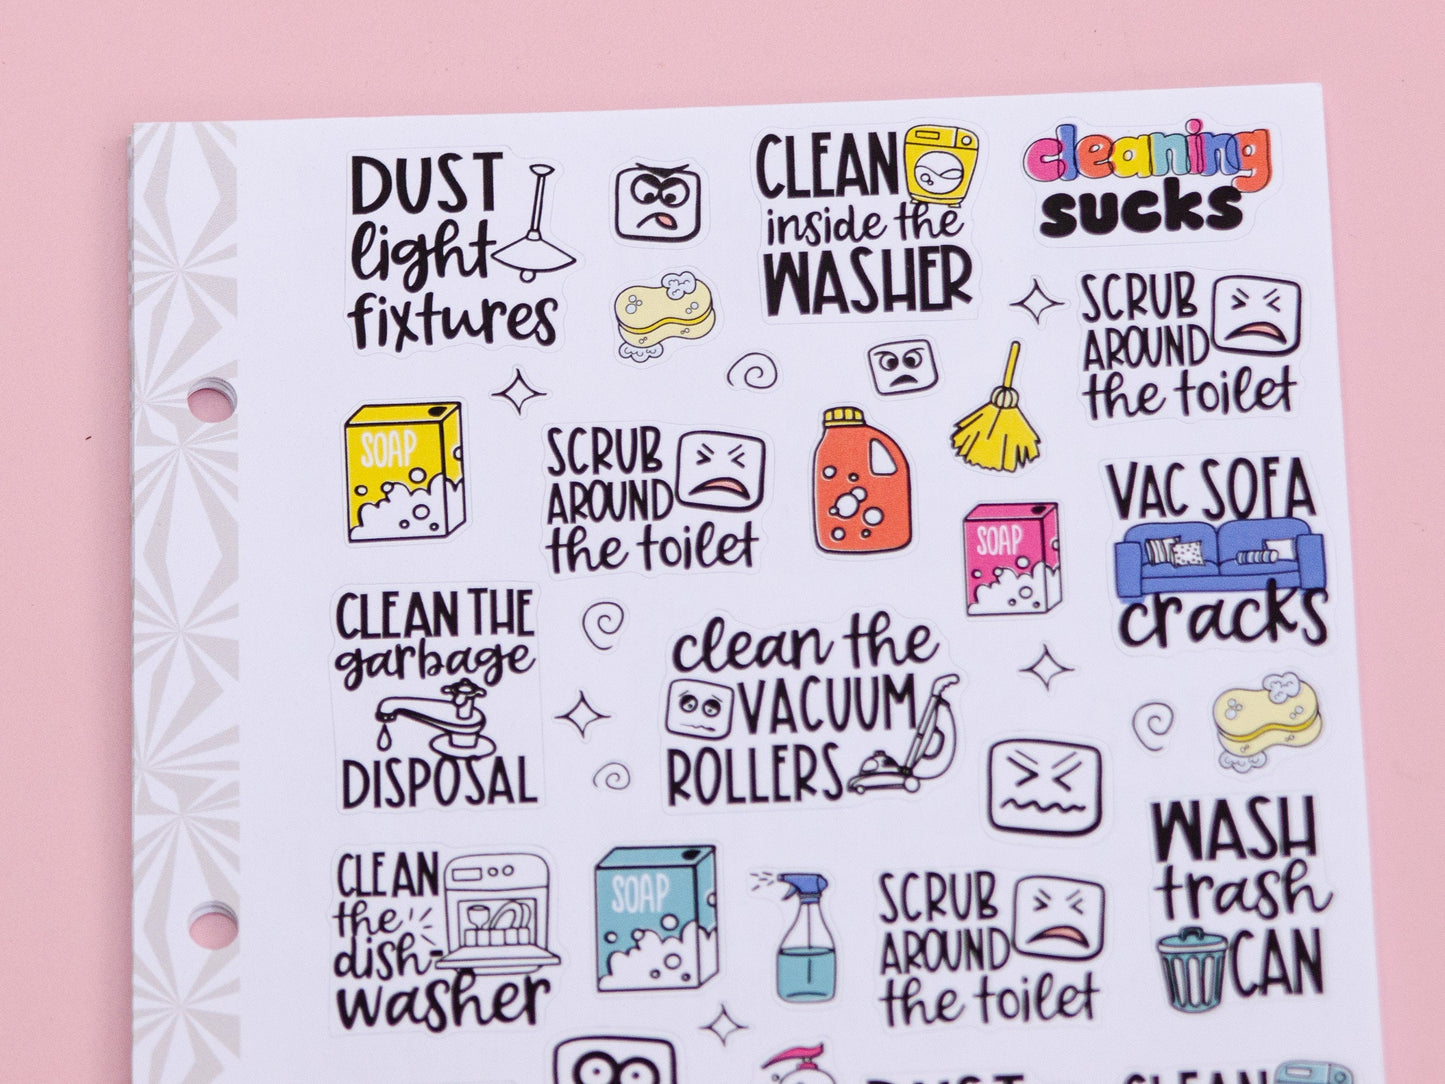 DUST
light
fixtures
CLEAN
inside the
WASHER
cleaning
sucks
SCRUB
AROUND
the toilet
SOAP
SCRUB
AROUND
the toilet
SOAP
VAC SOFA
cracks
CLEAN THE
garbage
DISPOSAL
clean the
VACUUM
ROLLERS
WASH
trash
CAN
CLEAN
the
dish-
washer
SOAP
SCRUB
AROUND
the toilet
DUST
CLEAN